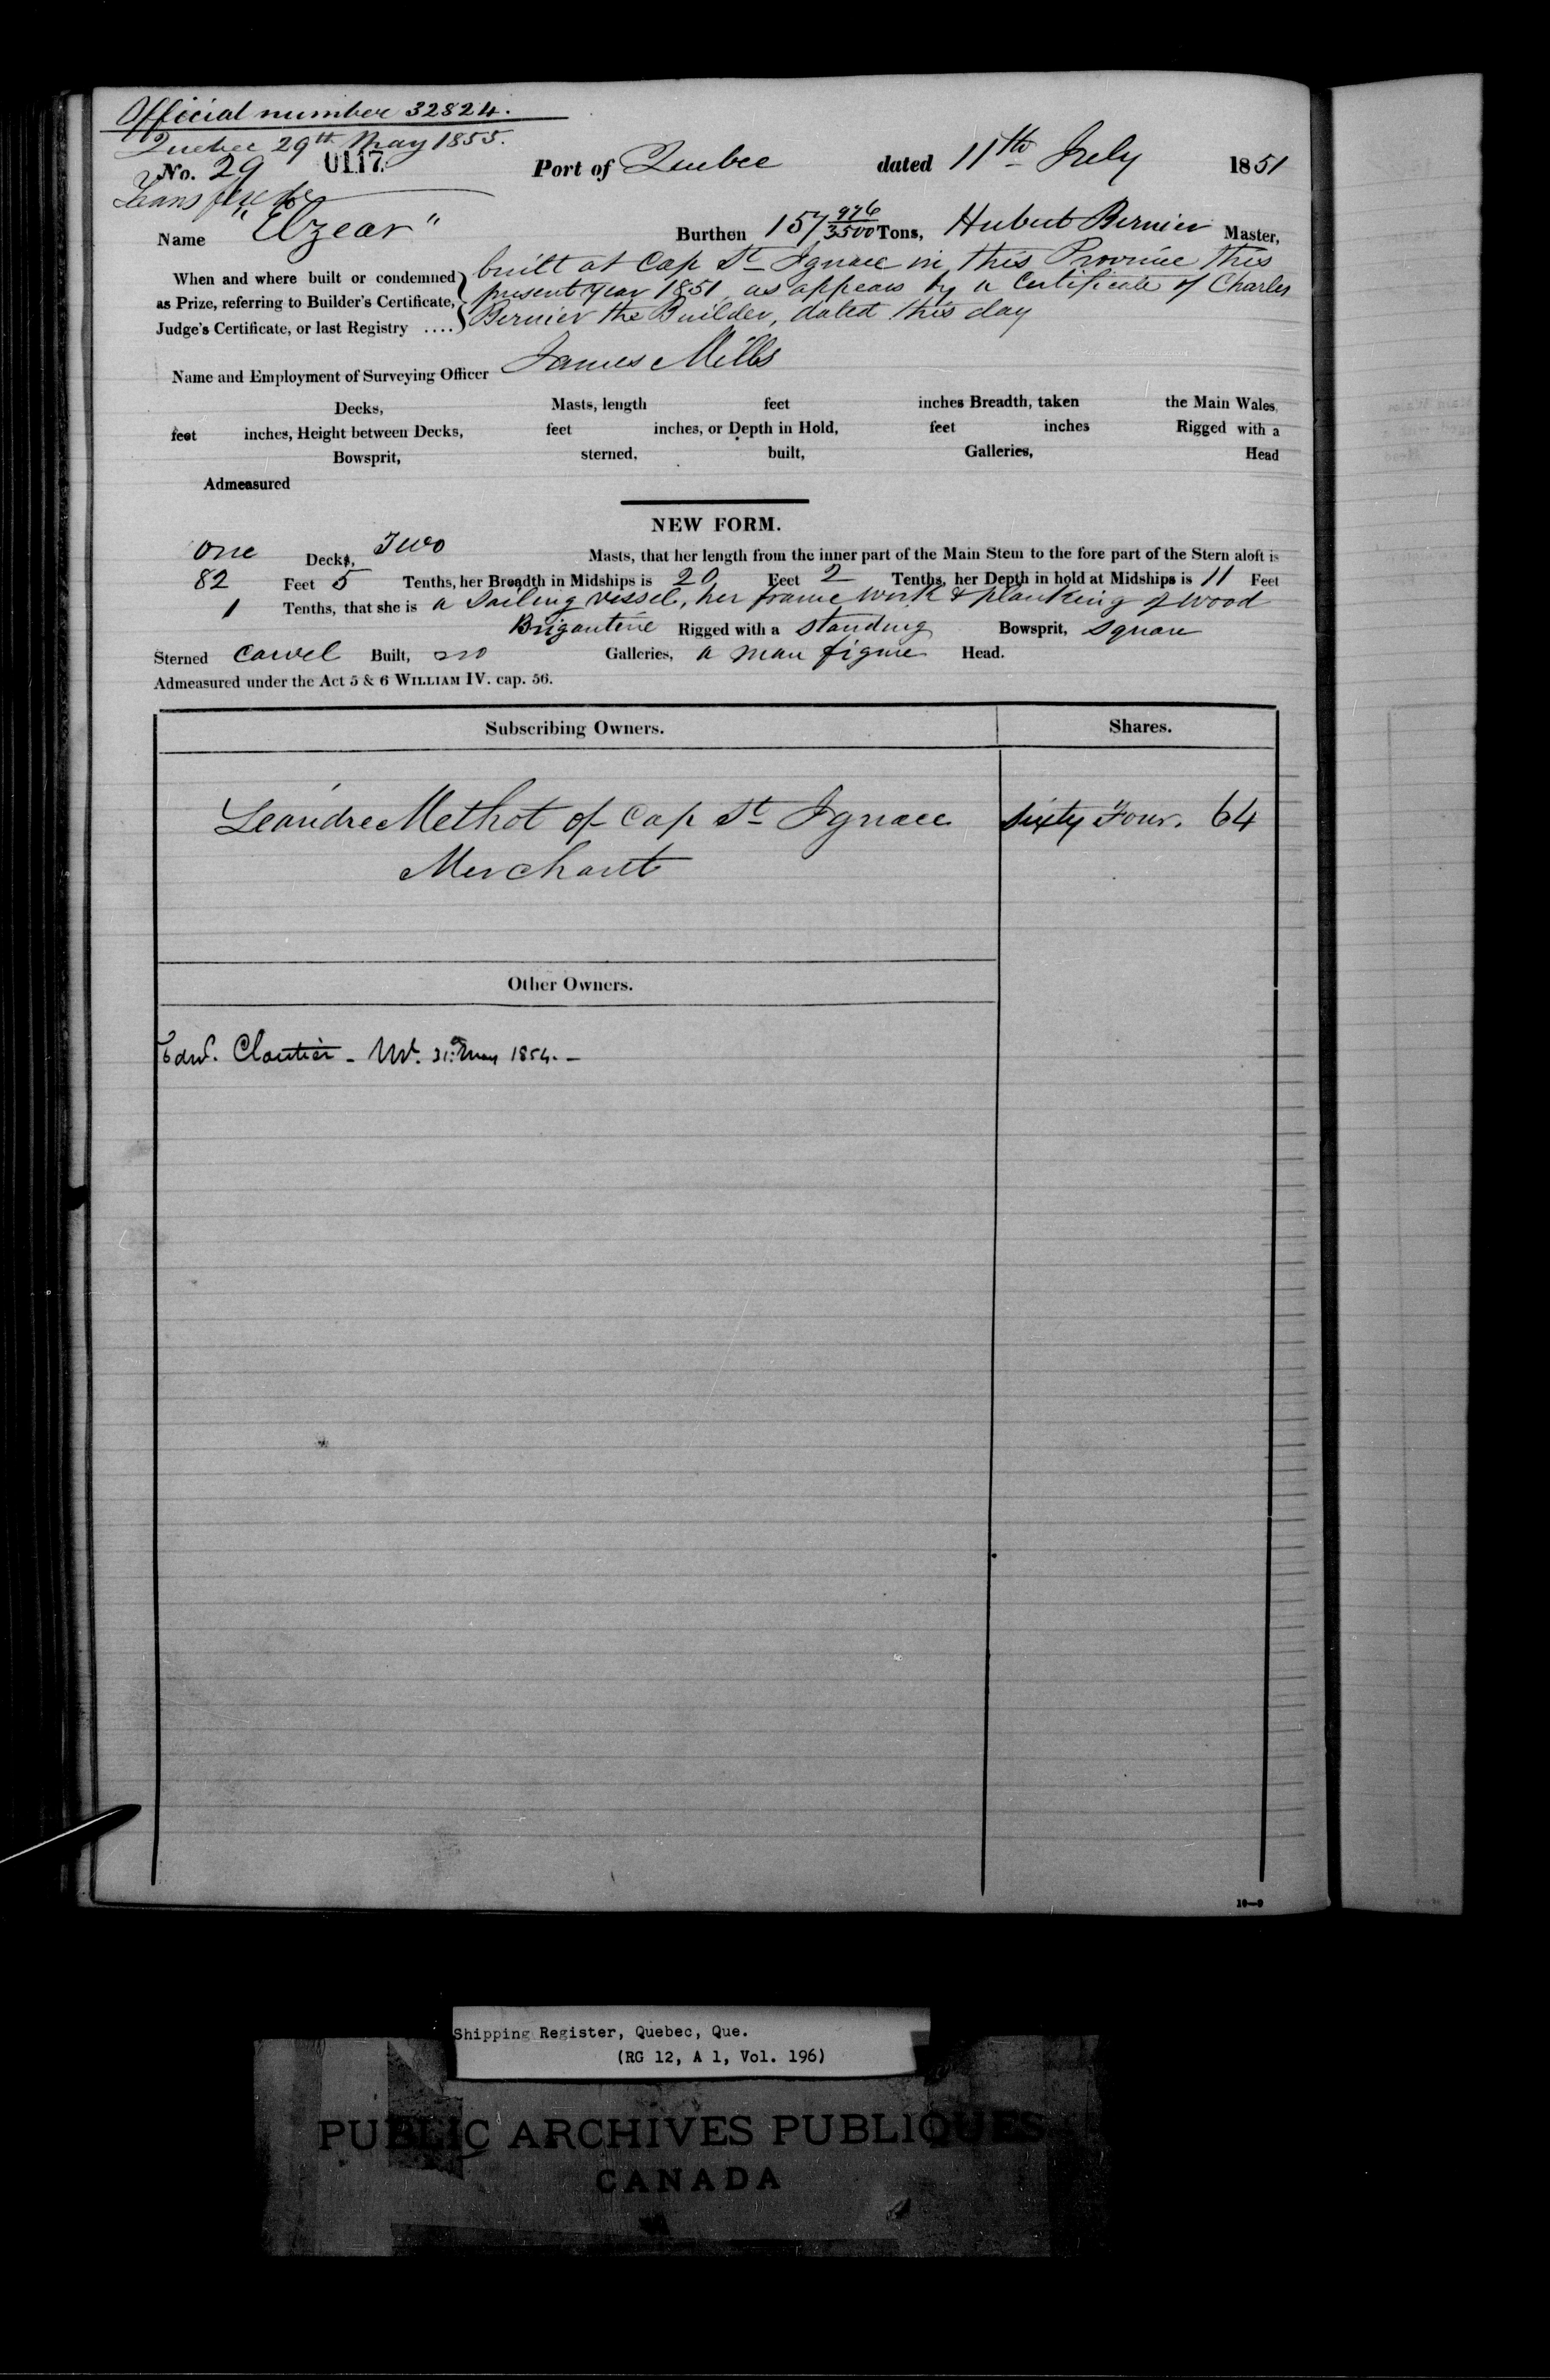 Official number 32824.
Quebec 29th May 1855.
No. 29 0117. Port of Quebec dated 11th July 1851
Transferred
Name "Elzear" Burthen 157 976/3500 Tons, Hubert Bernier Master,
When and where built or condemned built at Cap St Ignace in this Province this
as Prize, referring to Builder's Certificate, present year 1851 as appears by a Certificate of Charles
Judge's Certificate, or last Registry .... Bernier the Builder, dated this day
Name and Employment of Surveying Officer James Mills
Decks, Masts, length feet inches Breadth, taken the Main Wales,
feet inches, Height between Decks, feet inches, or Depth in Hold, feet inches Rigged with a
Bowsprit, sterned, built, Galleries, Head
Admeasured
NEW FORM.
One Decks, Two Masts, that her length from the inner part of the Main Stem to the fore part of the Stern aloft is
82 Feet 5 Tenths, her Breadth in Midships is 20 Feet 2 Tenths, her Depth in hold at Midships is 11 Feet
1 Tenths, that she is a Sailing vessel, her frame work & planking of wood
Brigantine Rigged with a standing Bowsprit, square
Sterned Carvel Built, no Galleries, a man figure Head.
Admeasured under the Act 5 & 6 WILLIAM IV. cap. 56.
Subscribing Owners. Shares.
Leandre Methot of Cap St Ignace Sixty Four. 64
Merchant
Other Owners.
Edwd. Cloutier - 31st May 1854. -
10—9
Shipping Register, Quebec, Que.
(RG 12, A 1, Vol. 196)
PUBLIC ARCHIVES PUBLIQUES
CANADA